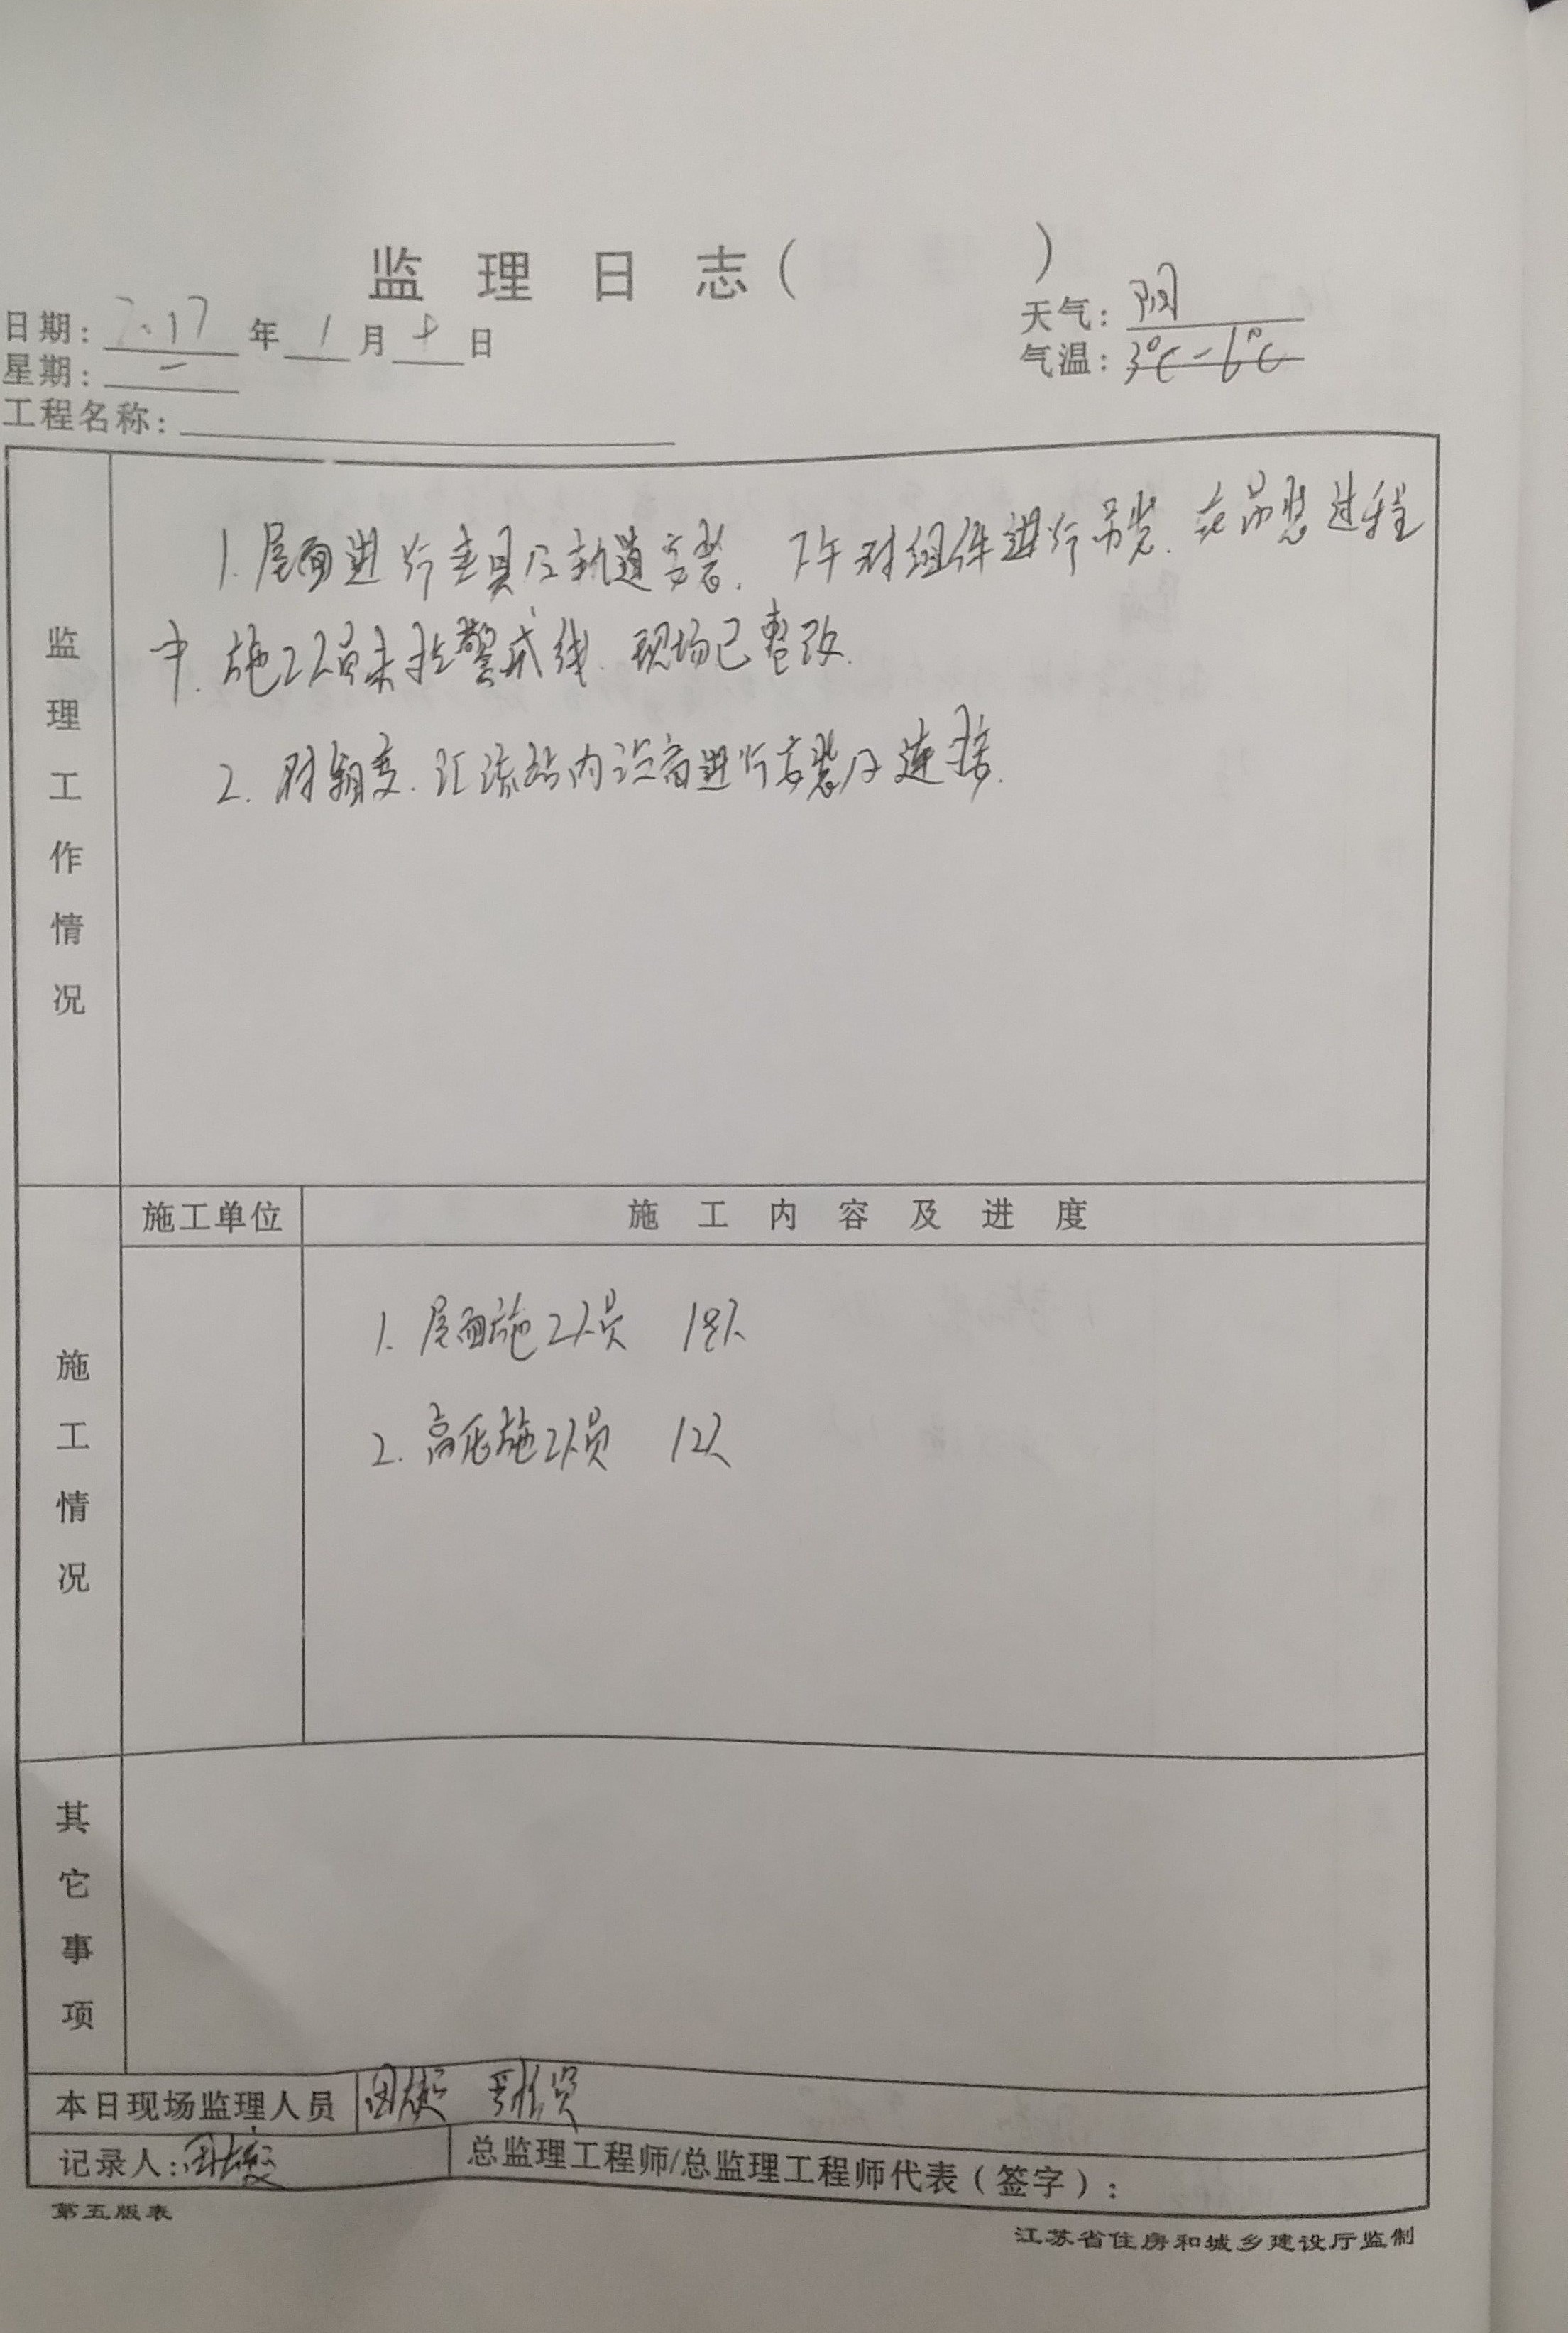 监理日志（ ）
日期： 2017 年 1 月 日
天气： 阴
星期： 一
气温： 3℃-6℃
工程名称：
监理工作情况
1. 屋面进行夹具及轨道安装. 下午对组件进行吊装. 在吊装过程
中. 施工人员未拉警戒线. 现场已整改.
2. 对箱变. 汇流站内设备进行安装及连接.
施工情况
施工单位 施工内容及进度
1. 屋面施工人员 18人
2. 高压施工人员 12人
其它事项
本日现场监理人员
记录人:
总监理工程师/总监理工程师代表（签字）:
第五版表
江苏省住房和城乡建设厅监制